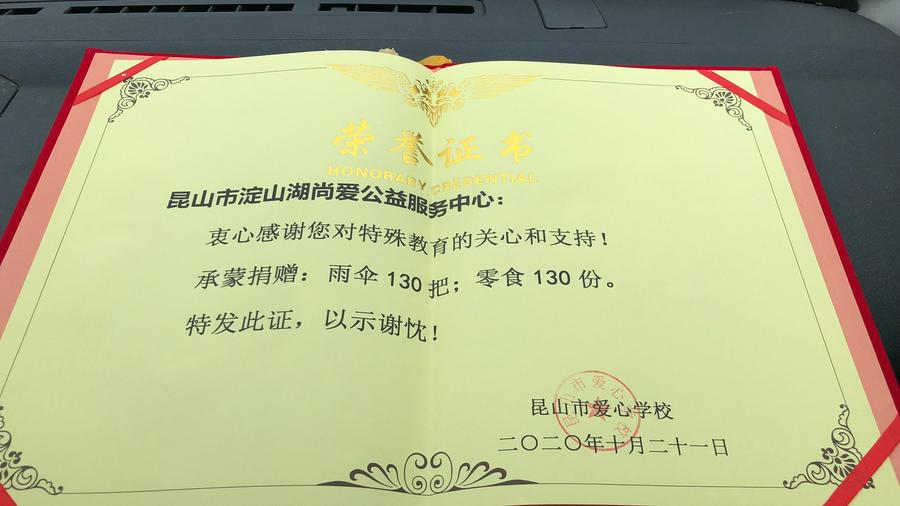 荣誉证书
HONORARY CREDENTIAL
昆山市淀山湖尚爱公益服务中心：
衷心感谢您对特殊教育的关心和支持！
承蒙捐赠：雨伞130把；零食130份。
特发此证，以示谢忱！
昆山市爱心学校
昆山市爱心学校
二〇二〇年十月二十一日